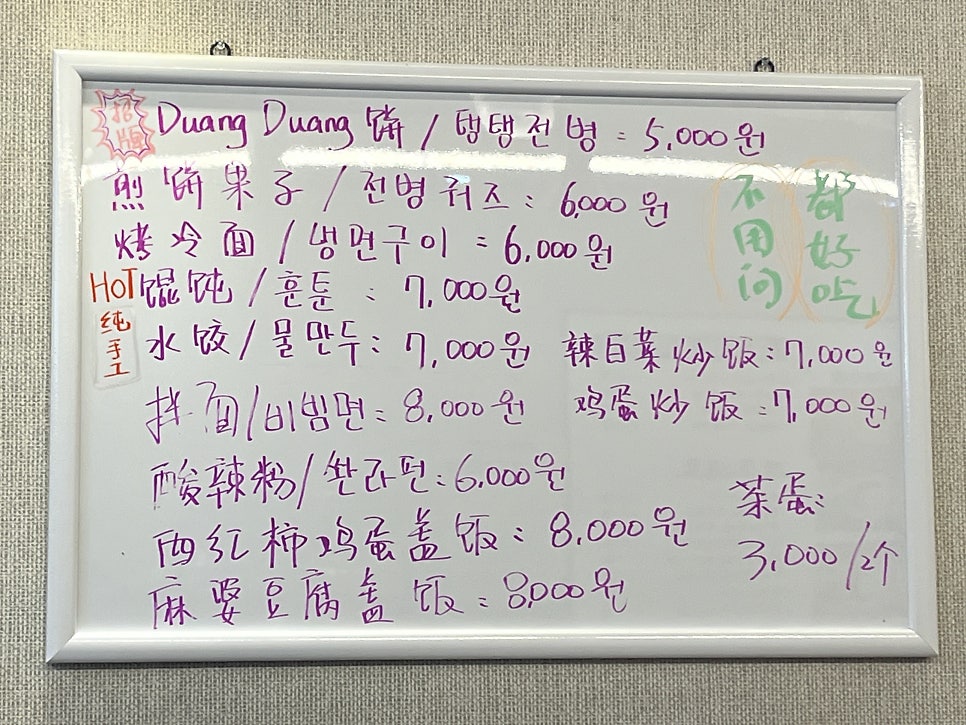 招牌
Duang Duang 饼 / 탱탱전병 : 5,000원
煎饼果子 / 전병궈즈 : 6,000원
烤冷面 / 냉면구이 : 6,000원
HOT 馄饨 / 훈툰 : 7,000원
纯手工
水饺 / 물만두 : 7,000원
拌面 / 비빔면 : 8,000원
酸辣粉 / 쏸라펀 : 6,000원
西红柿鸡蛋盖饭 : 8,000원
麻婆豆腐盖饭 : 8,000원
不用问
都好吃
辣白菜炒饭 : 7,000원
鸡蛋炒饭 : 7,000원
茶蛋:
3,000/2个